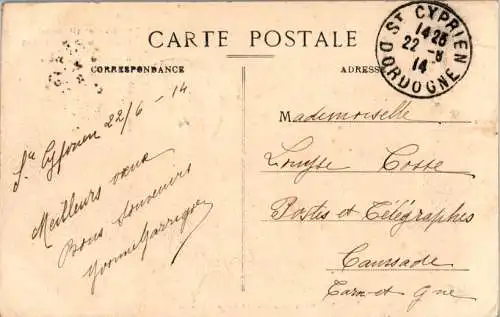 CARTE POSTALE
CORRESPONDANCE
ADRESSE
ST CYPRIEN
14 25
22 -6
14
DORDOGNE
St Cyprien 22/6 - 14
Meilleurs vœux
Bons Souvenirs
Yvonne Garrigue
Mademoiselle
Louyse Cosse
Postes et Télégraphes
Caussade
Tarn-et Gne